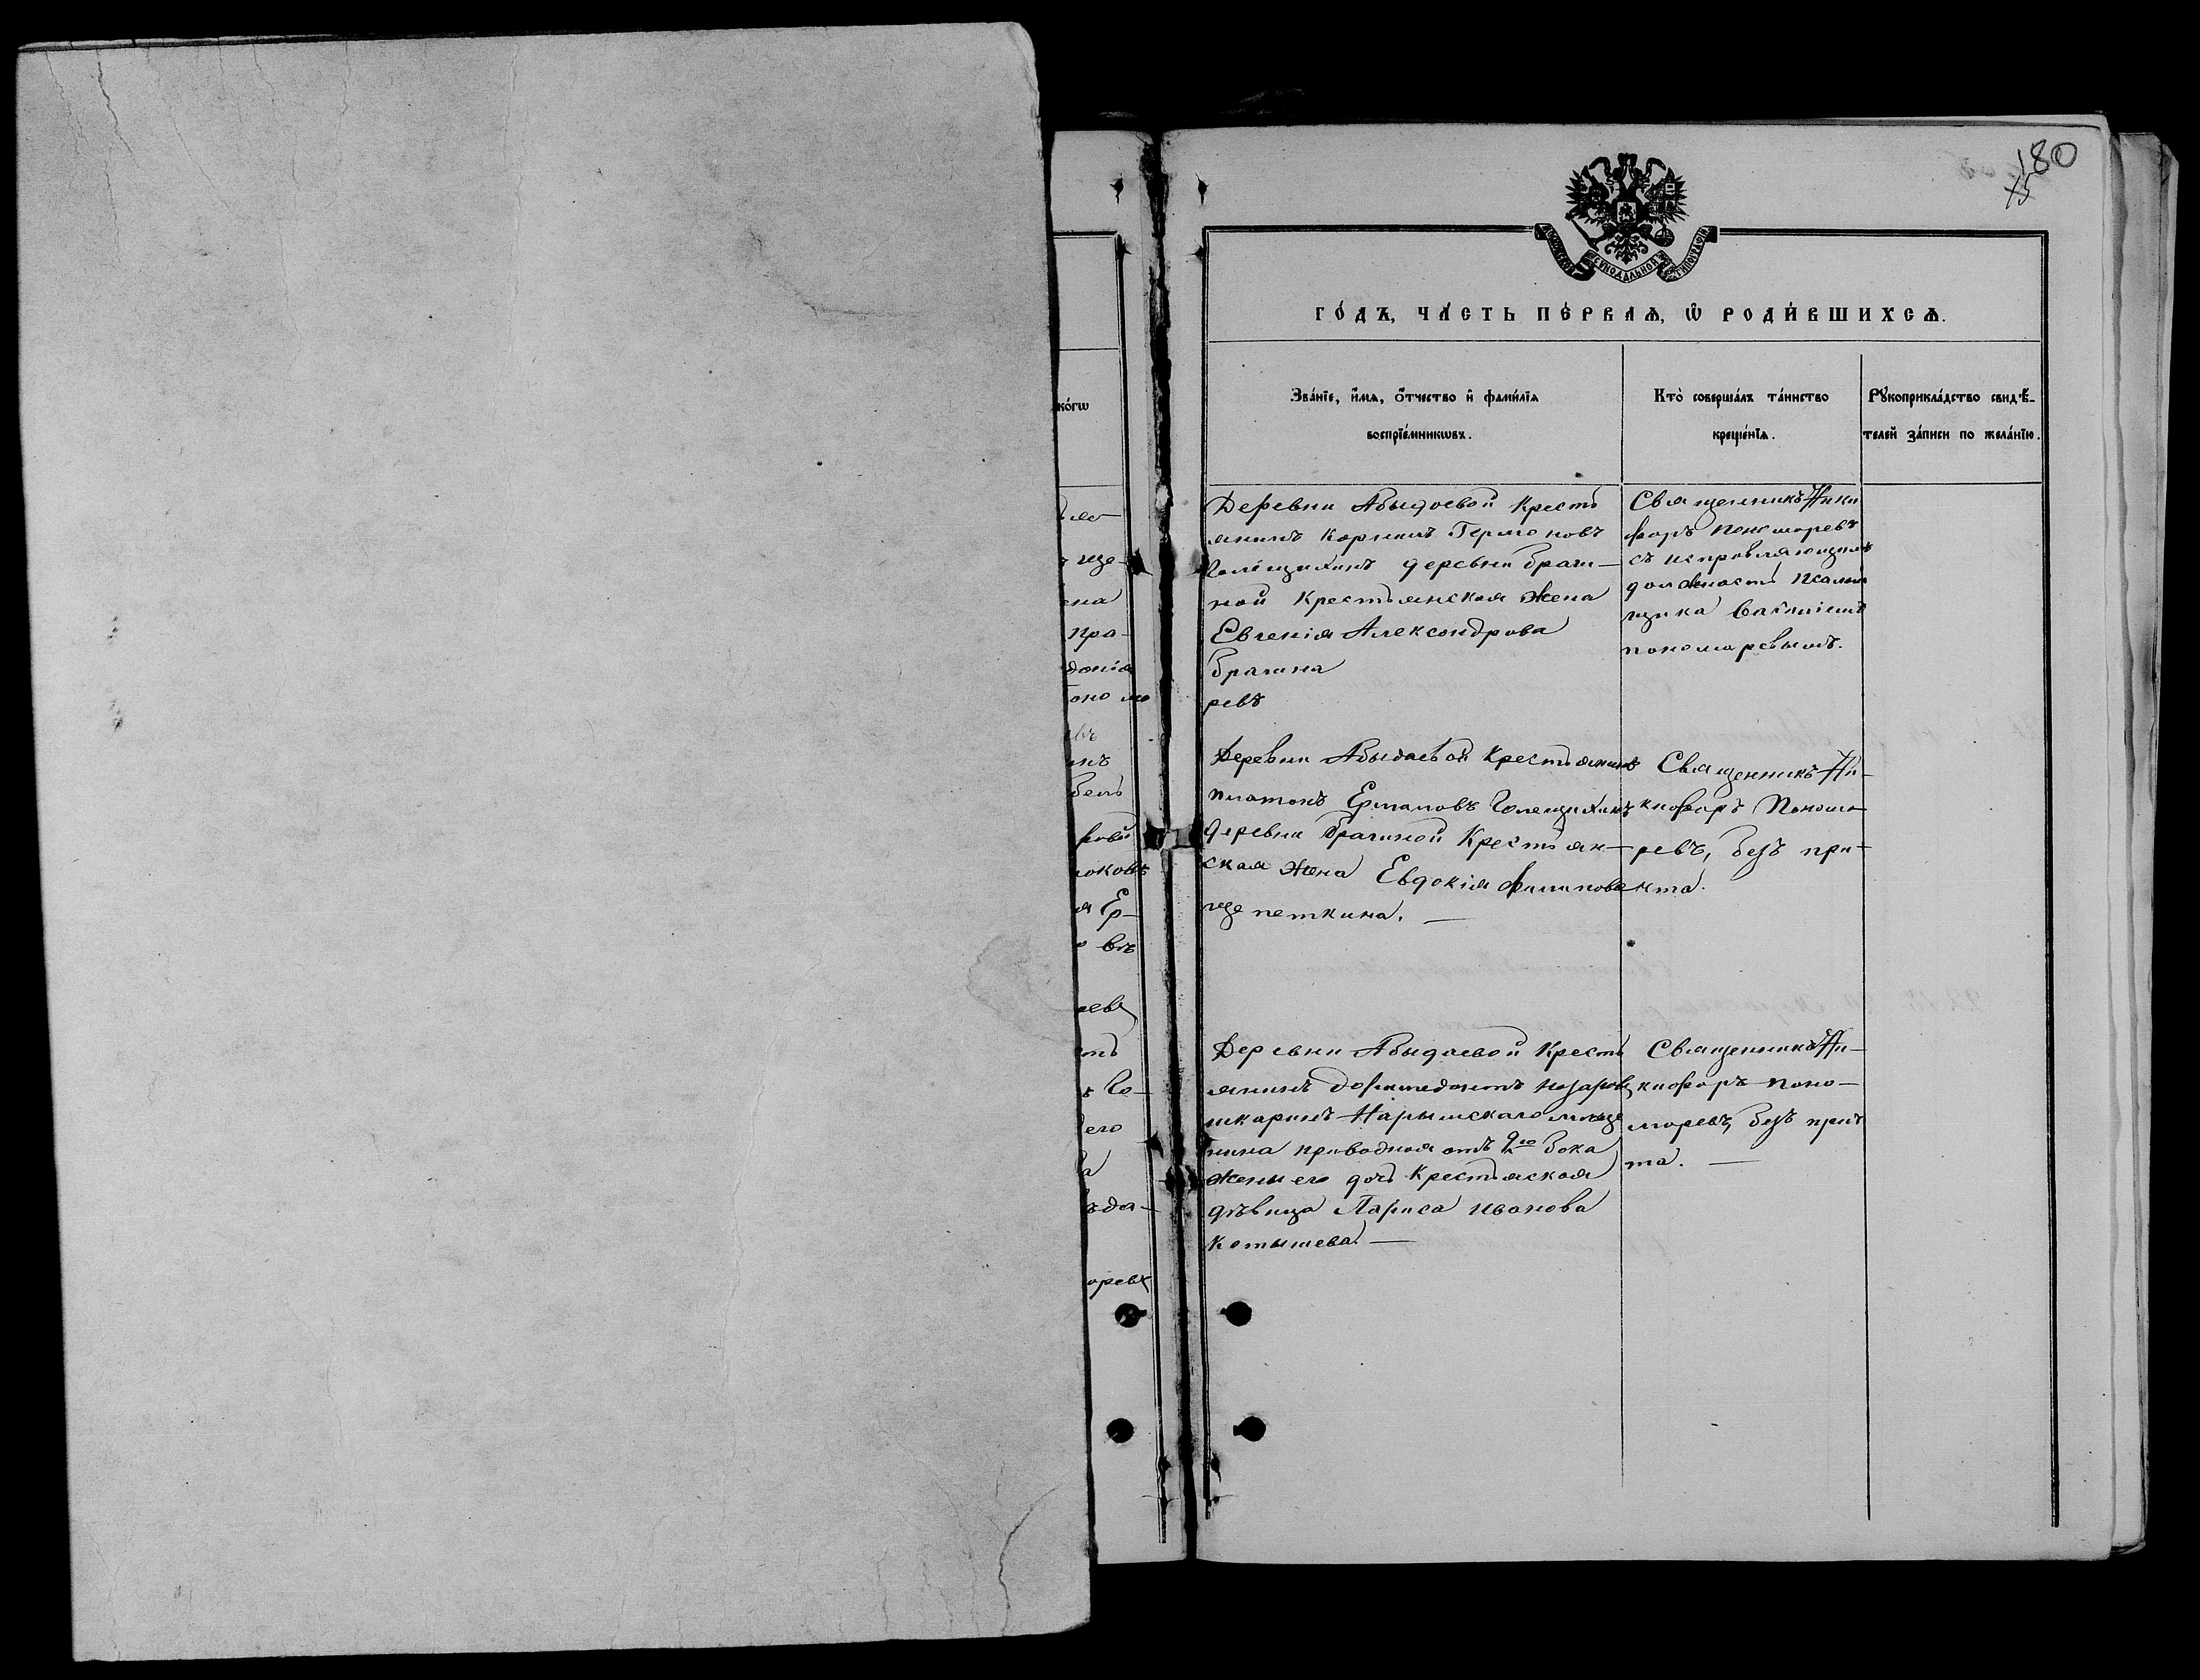 180
75
СѴНОДАЛЬНОЙ
ГО́ДЪ, ЧА́СТЬ ПЕ́РВАѦ, Ѡ҆ РОДИ́ВШИХСѦ.
ко́гѡ
Зва́нїе, и҆́мѧ, ѻ҆́тчество и҆ фами́лїѧ
воспрїе́мникѡвъ.
Кто̀ соверша́лъ та́инство
креще́нїѧ.
Рꙋкоприкла́дство свидѣ́-
телей за́писи по жела́нїю.
Деревни Абыдоевой Кресть
янинъ Корнилъ Гермоновъ
Голещихинъ деревни Браги-
ной Крестьянская жена
Евгенія Александрова
Брагина
ревъ
Священникъ Ники
форъ Пономоревъ
съ исправляющимъ
должность псалм
щика
пономоревымъ.
Деревни Абыдаевой Крестьянинъ
Платонъ Ермаловъ Голещихинъ
деревни Брагиной Крестьян-
ская жена Евдокія Филипова
щепеткина. —
Священникъ Ни-
кифоръ Пономо
ревъ, безъ при-
кта.
Деревни Абыдаевой Кресть
янинъ Доримедонтъ Назаров
шкаринъ Нарымскаго мѣще
нина приводная отъ 9го бока
жены его дочь Крестьяская
дѣвица Лариса Иванова
Котышева. —
Священникъ Ни-
кифоръ Поно-
моревъ, безъ прич
та. —
ще-
ена
пра-
доніа
оно мо
евъ
инъ
бель
ковъ
я Ер-
о въ
Го-
его
а
ѣда-
оревъ